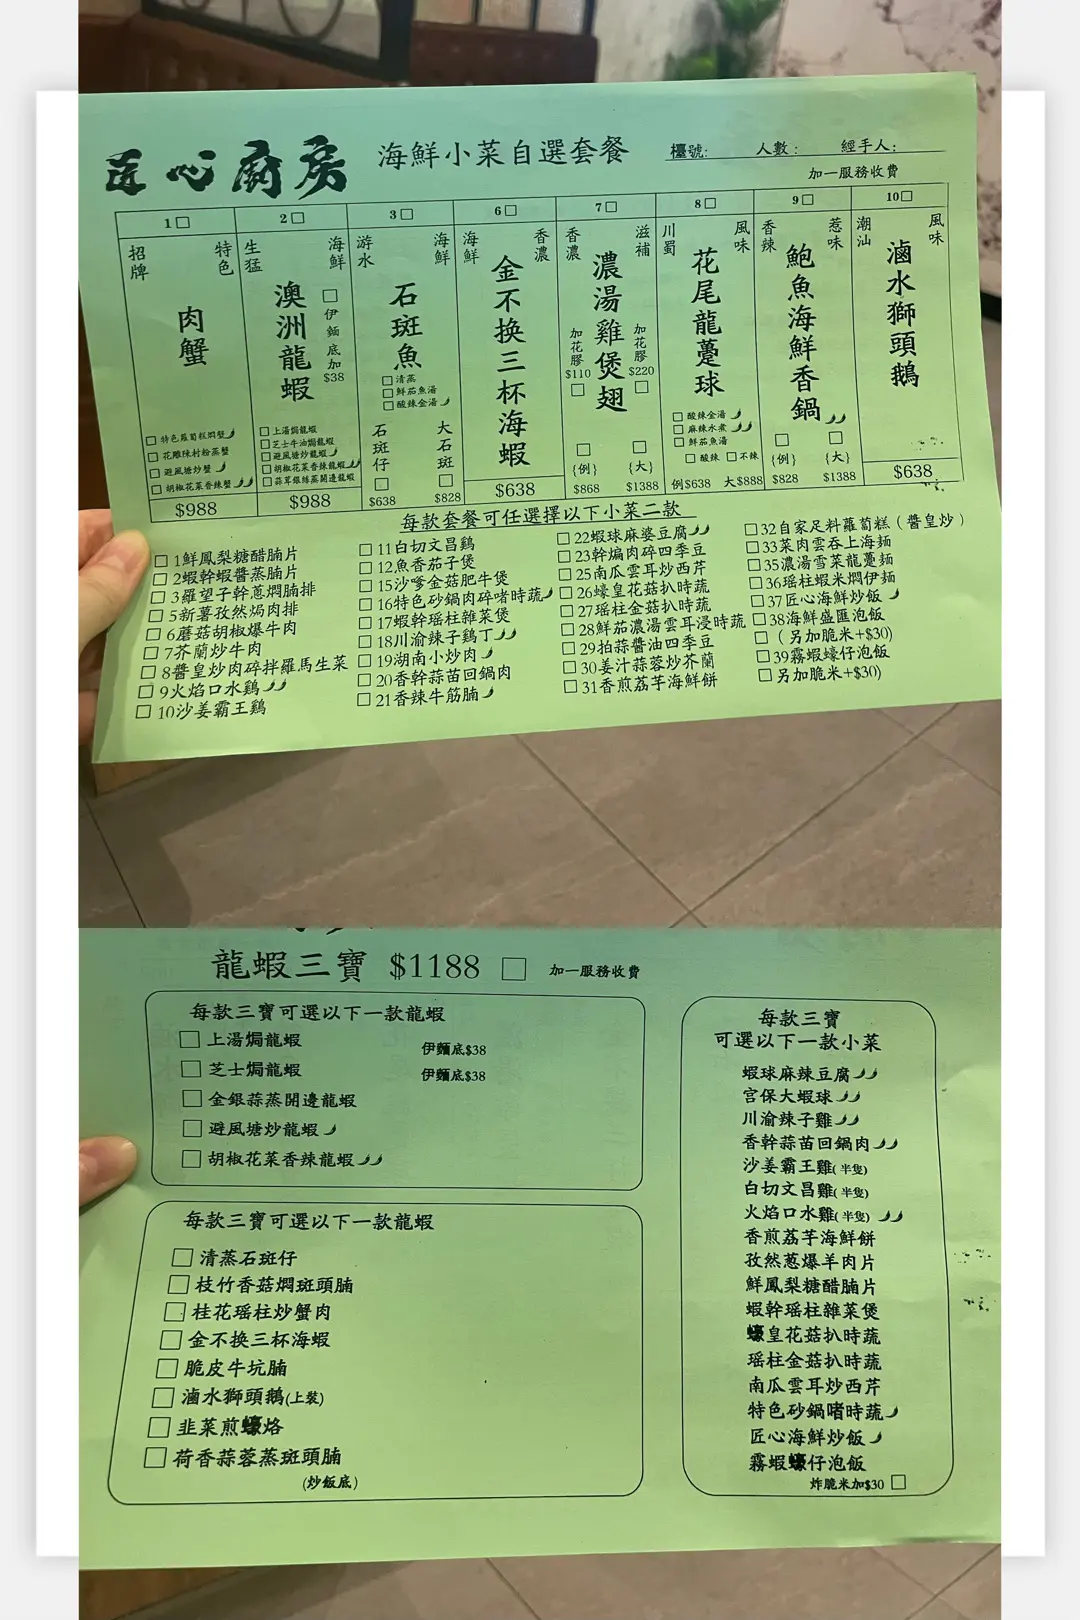 匠心廚房 海鮮小菜自選套餐 檯號: 人數: 經手人:
加一服務收費
1□ 2□ 3□ 6□ 7□ 8□ 9□ 10□
招牌 特色
肉蟹
□ 特色蘿蔔糕焗蟹
□ 花雕陳村粉蒸蟹
□ 避風塘炒蟹
□ 胡椒花菜香辣蟹
$988
生猛 海鮮
澳洲龍蝦
□伊麵底加$38
□上湯焗龍蝦
□芝士牛油焗龍蝦
□避風塘炒龍蝦
□胡椒花菜香辣龍蝦
□蒜茸銀絲蒸開邊龍蝦
$988
游水 海鮮
石斑魚
□清蒸
□鮮茄魚湯
□酸辣金湯
石斑仔 □ $638
大石斑 □ $828
海鮮 香濃
金不換三杯海蝦
$638
香濃 滋補
濃湯雞煲翅
加花膠$110□
加花膠$220□
□{例} $868
□{大} $1388
川蜀 風味
花尾龍躉球
□酸辣金湯
□麻辣水煮
□鮮茄魚湯
□酸辣 □不辣
例$638 大$888
香辣 惹味
鮑魚海鮮香鍋
□{例} $828
□{大} $1388
潮汕 風味
滷水獅頭鵝
$638
每款套餐可任選擇以下小菜二款
□ 1鮮鳳梨糖醋腩片
□ 2蝦幹蝦醬蒸腩片
□ 3羅望子幹蔥燜腩排
□ 5新薯孜然焗肉排
□ 6蘑菇胡椒爆牛肉
□ 7芥蘭炒牛肉
□ 8醬皇炒肉碎拌羅馬生菜
□ 9火焰口水鷄
□ 10沙姜霸王鷄
□ 11白切文昌鷄
□ 12魚香茄子煲
□ 15沙嗲金菇肥牛煲
□ 16特色砂鍋肉碎啫時蔬
□ 17蝦幹瑶柱雜菜煲
□ 18川渝辣子鷄丁
□ 19湖南小炒肉
□ 20香幹蒜苗回鍋肉
□ 21香辣牛筋腩
□ 22蝦球麻婆豆腐
□ 23幹煸肉碎四季豆
□ 25南瓜雲耳炒西芹
□ 26蠔皇花菇扒時蔬
□ 27瑶柱金菇扒時蔬
□ 28鮮茄濃湯雲耳浸時蔬
□ 29拍蒜醬油四季豆
□ 30姜汁蒜蓉炒芥蘭
□ 31香煎荔芋海鮮餅
□ 32自家足料蘿蔔糕（醬皇炒）
□ 33菜肉雲吞上海麵
□ 35濃湯雪菜龍躉麵
□ 36瑶柱蝦米燜伊麵
□ 37匠心海鮮炒飯
□ 38海鮮盛匯泡飯
□（另加脆米+$30)
□ 39霧蝦蠔仔泡飯
□ 另加脆米+$30)
龍蝦三寶 $1188 □ 加一服務收費
每款三寶可選以下一款龍蝦
□ 上湯焗龍蝦 伊麵底$38
□ 芝士焗龍蝦 伊麵底$38
□ 金銀蒜蒸開邊龍蝦
□ 避風塘炒龍蝦
□ 胡椒花菜香辣龍蝦
每款三寶可選以下一款龍蝦
□ 清蒸石斑仔
□ 枝竹香菇燜斑頭腩
□ 桂花瑶柱炒蟹肉
□ 金不换三杯海蝦
□ 脆皮牛坑腩
□ 滷水獅頭鵝(上裝)
□ 韭菜煎蠔烙
□ 荷香蒜蓉蒸斑頭腩
(炒飯底)
每款三寶
可選以下一款小菜
蝦球麻辣豆腐
宮保大蝦球
川渝辣子雞
香幹蒜苗回鍋肉
沙姜霸王雞(半隻)
白切文昌雞(半隻)
火焰口水雞(半隻)
香煎荔芋海鮮餅
孜然葱爆羊肉片
鮮鳳梨糖醋腩片
蝦幹瑶柱雜菜煲
蠔皇花菇扒時蔬
瑶柱金菇扒時蔬
南瓜雲耳炒西芹
特色砂鍋啫時蔬
匠心海鮮炒飯
霧蝦蠔仔泡飯
炸脆米加$30 □